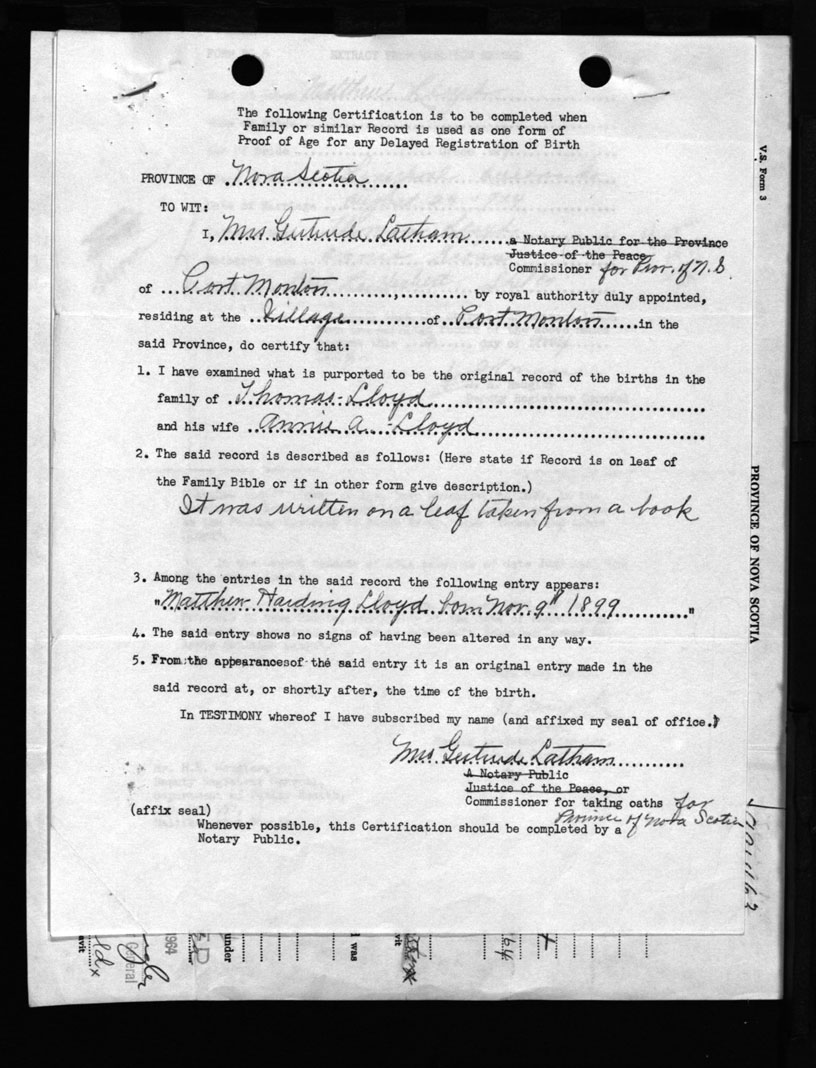 The following Certification is to be completed when
Family or similar Record is used as one form of
Proof of Age for any Delayed Registration of Birth
PROVINCE OF Nova Scotia
TO WIT:
I, Mrs Gertrude Latham a Notary Public for the Province
Justice of the Peace
Commissioner for Prov. of N.S.
of Port Mouton, by royal authority duly appointed,
residing at the Village of Port Mouton in the
said Province, do certify that:
1. I have examined what is purported to be the original record of the births in the
family of Thomas Lloyd
and his wife Annie A. Lloyd
2. The said record is described as follows: (Here state if Record is on leaf of
the Family Bible or if in other form give description.)
It was written on a leaf taken from a book
3. Among the entries in the said record the following entry appears:
"Matthew Harding Lloyd born Nov. 9th 1899"
4. The said entry shows no signs of having been altered in any way.
5. From the appearances of the said entry it is an original entry made in the
said record at, or shortly after, the time of the birth.
In TESTIMONY whereof I have subscribed my name (and affixed my seal of office.)
Mrs. Gertrude Latham
A Notary Public
Justice of the Peace, or
Commissioner for taking oaths for
Province of Nova Scotia
(affix seal)
Whenever possible, this Certification should be completed by a
Notary Public.
V.S. Form 3
PROVINCE OF NOVA SCOTIA
General
1964
under
I was